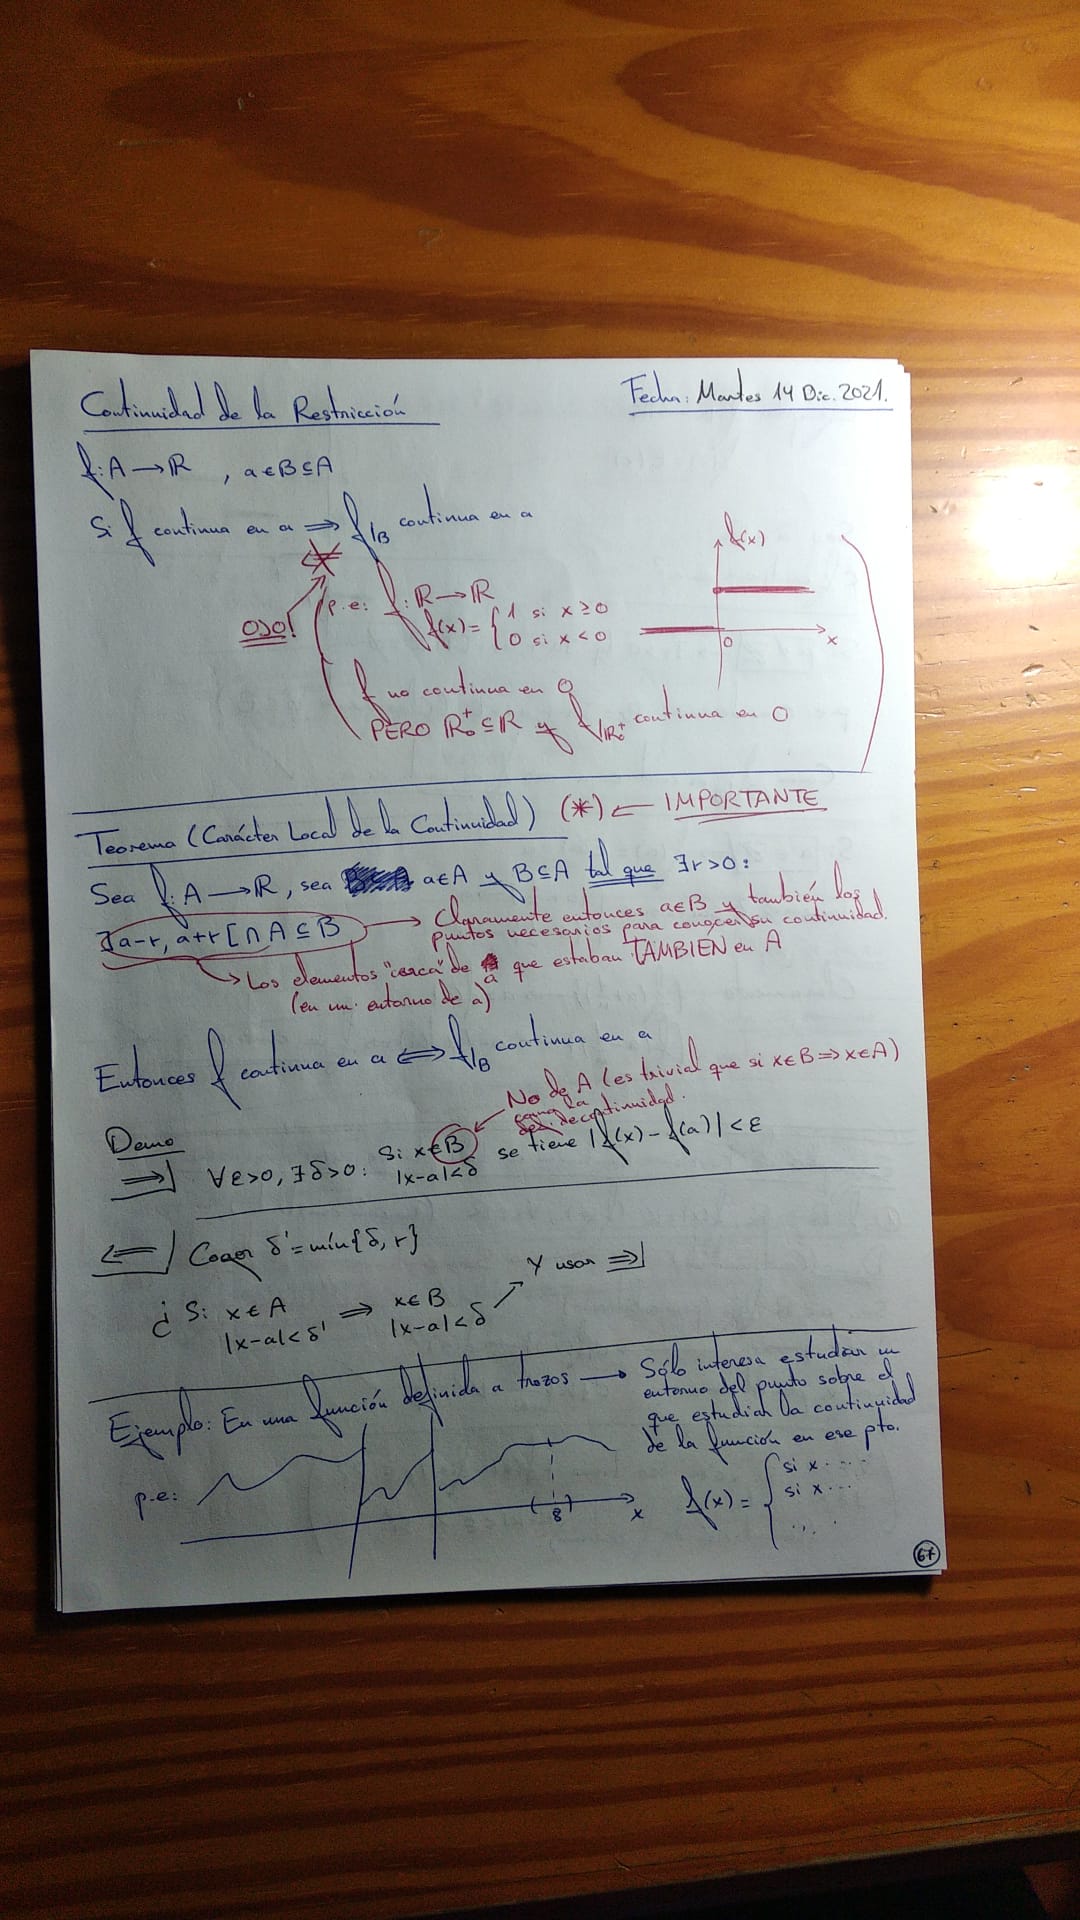 Continuidad de la Restricción
Fecha: Martes 14 Dic. 2021.
f: A → ℝ , a ∈ B ⊆ A
Si f continua en a ⇒ f|B continua en a
⇍
OJO!
p.e: f: ℝ → ℝ
f(x) = { 1 si x ≥ 0
0 si x < 0
f(x)
0
x
f no continua en 0
PERO ℝ₀⁺ ⊆ ℝ y f|ℝ₀⁺ continua en 0
Teorema (Carácter Local de la Continuidad) (*) ← IMPORTANTE
Sea f: A → ℝ, sea a ∈ A y B ⊆ A tal que ∃r>0:
]a-r, a+r[ ∩ A ⊆ B → Claramente entonces a∈B y también los
puntos necesarios para conocer su continuidad.
→ Los elementos "cerca" de a que estaban TAMBIEN en A
(en un entorno de a)
Entonces f continua en a ⇔ f|B continua en a
No de A (es trivial que si x∈B ⇒ x∈A)
como la
def. de continuidad.
Demo
⇒] ∀ε>0, ∃δ>0: Si x∈B
|x-a|<δ se tiene |f(x) - f(a)| < ε
⇐] Coger δ' = mín{δ, r}
Y usar ⇒]
¿ Si x ∈ A ⇒ x ∈ B
|x-a|<δ' |x-a|<δ
Ejemplo: En una función definida a trozos → Sólo interesa estudiar un
entorno del punto sobre el
que estudiar la continuidad
de la función en ese pto.
p.e:
8
x
f(x) = { si x ....
si x ...
...
67